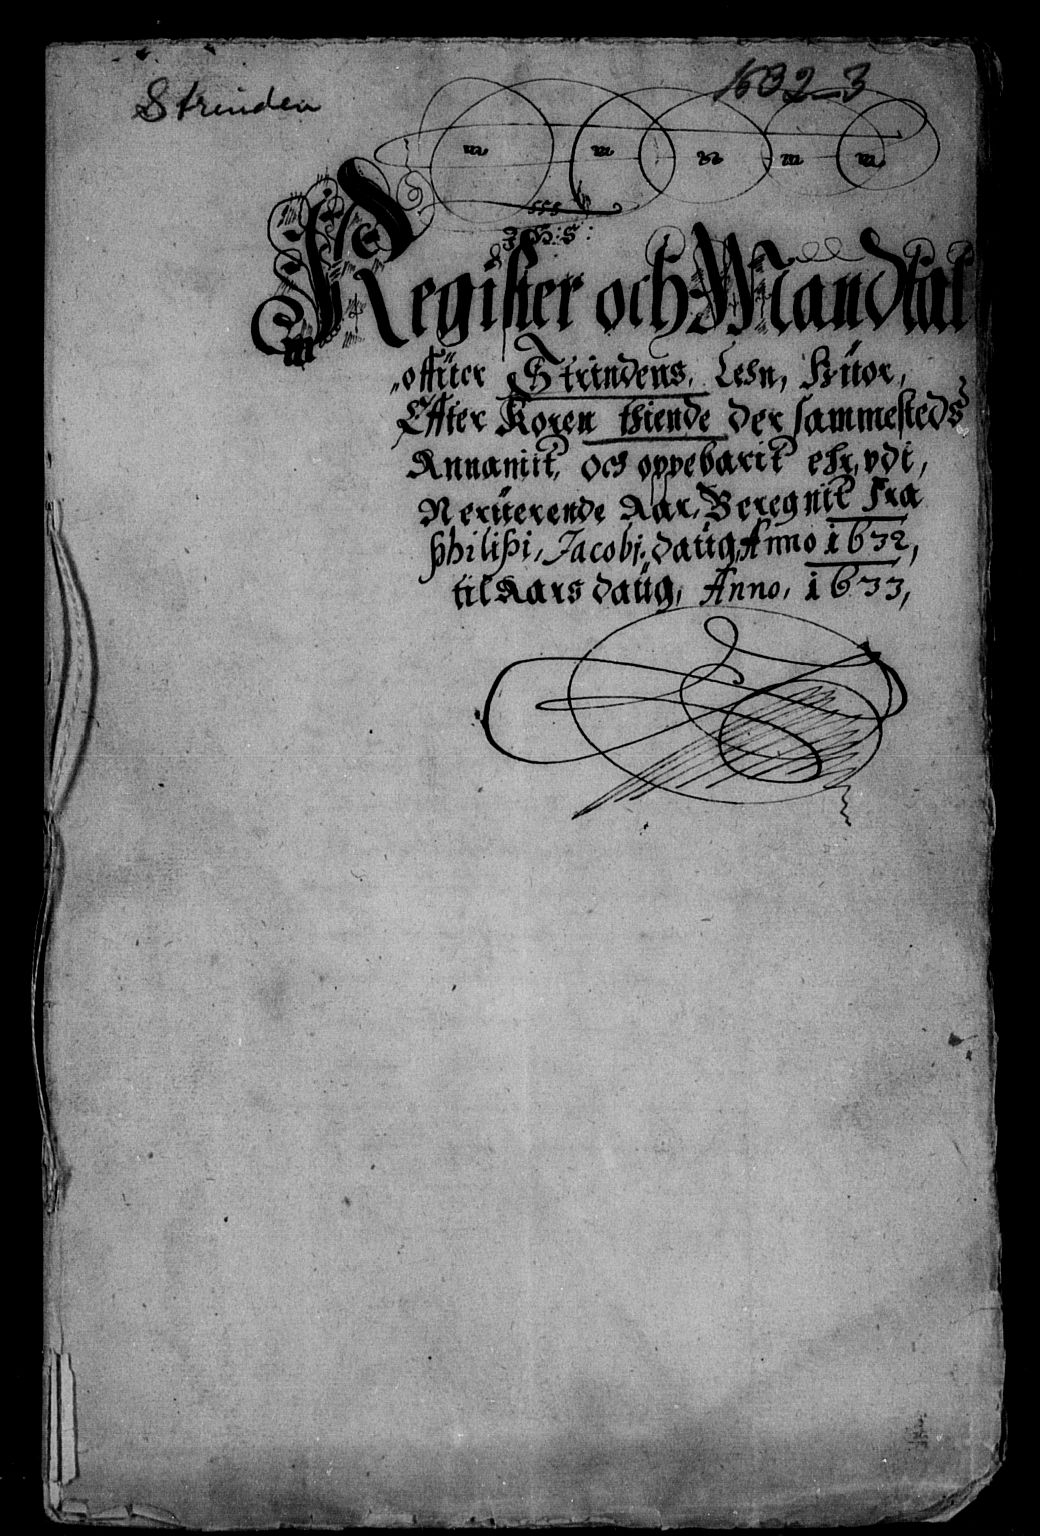 Strinden
1632-3
m m n m m
J:H:S:
Register och Mandtal
offüer Strindens, Lehn, Hüor,
Effter Koren thiende der sammesteds
Annamit, och oppebarit ehr, vdi,
Nerüerende Aar, Beregnit Fra
philipi, Jacobi, daüg, Anno 1632,
til Aars daüg, Anno, 1633,